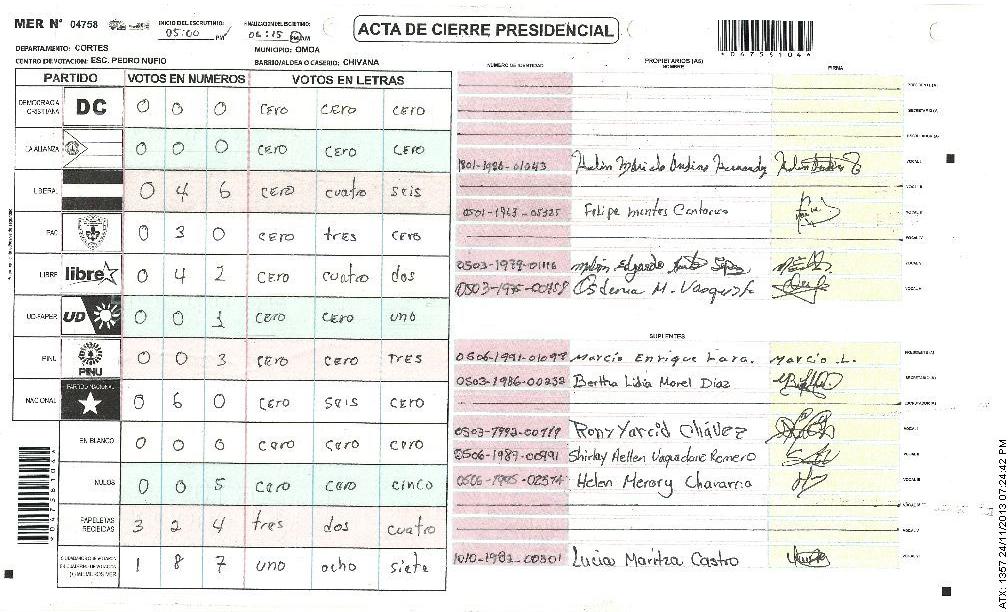 MER N° 04758 INICIO DEL ESCRUTINIO: 05:00 PM FINALIZACION DEL ESCRUTINIO: 06:15 PM ACTA DE CIERRE PRESIDENCIAL
DEPARTAMENTO: CORTES MUNICIPIO: OMOA
CENTRO DE VOTACION: ESC. PEDRO NUFIO BARRIO/ALDEA O CASERIO: CHIVANA
*04758104*
PARTIDO VOTOS EN NUMEROS VOTOS EN LETRAS
DEMOCRACIA CRISTIANA DC 0 0 0 cero cero cero
LA ALIANZA 0 0 0 cero cero cero
LIBERAL 0 4 6 cero cuatro seis
PAC 0 3 0 cero tres cero
LIBRE libre 0 4 2 cero cuatro dos
UD-FAPER UD 0 0 1 cero cero uno
PINU PINU 0 0 3 cero cero tres
NACIONAL PARTIDO NACIONAL 0 6 0 cero seis cero
EN BLANCO 0 0 0 cero cero cero
NULOS 0 0 5 cero cero cinco
PAPELETAS RECIBIDAS 3 2 4 tres dos cuatro
1 8 7 uno ocho siete
NUMERO DE IDENTIDAD PROPIETARIOS (AS) NOMBRE FIRMA
PRESIDENTE (A)
SECRETARIO (A)
ESCRUTADOR (A)
1801-1986-01043 VOCAL I
VOCAL II
0501-1963-05325 Felipe Montes VOCAL III
VOCAL IV
0503-1979-01116 Edgardo VOCAL V
0503-1975-00758 M. VOCAL VI
SUPLENTES
0506-1991-01097 Marcio Enrique Lara. Marcio L. PRESIDENTE (A)
0503-1986-00232 Bertha Lidia Morel Diaz SECRETARIO (A)
ESCRUTADOR (A)
0503-1992-00719 Rony Yarcid Chávez VOCAL I
0506-1987-00991 Shirley Romero VOCAL II
0506-1995-02374 Helen Merary Chavarria VOCAL III
VOCAL IV
VOCAL V
1010-1982-00301 Lucia Maritza Castro VOCAL VI
*04758104*
ATX: 1357 24/11/2013 07:24:42 PM